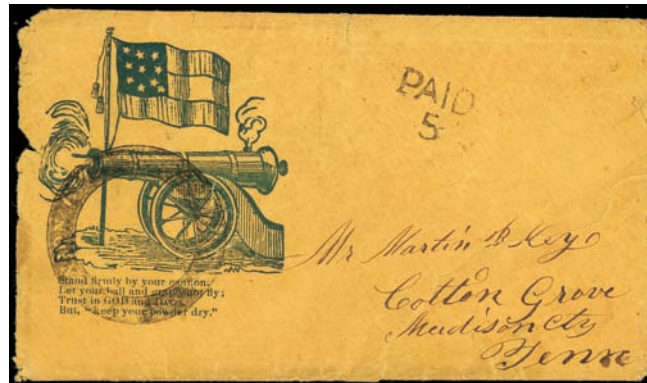 PAID
5
Stand firmly by your cannon,
Let your ball and grape-shot fly;
Trust in GOD and
But, "keep your powder dry."
Mr Martin Key
Cotton Grove
Madison Cty
Tenn